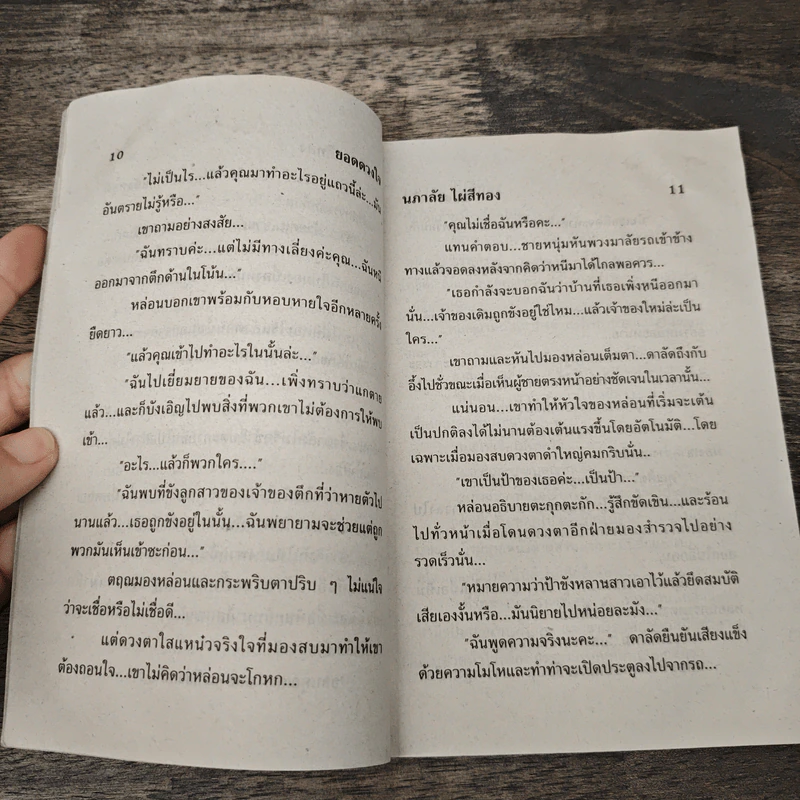 10
ยอดดวงใจ
"ไม่เป็นไร...แล้วคุณมาทำอะไรอยู่แถวนี้ล่ะ...มัน
อันตรายไม่รู้หรือ..."
เขาถามอย่างสงสัย...
"ฉันทราบค่ะ...แต่ไม่มีทางเลี่ยงค่ะคุณ...ฉันหนี
ออกมาจากตึกด้านในโน้น..."
หล่อนบอกเขาพร้อมกับหอบหายใจอีกหลายครั้ง
ยืดยาว...
"แล้วคุณเข้าไปทำอะไรในนั้นล่ะ..."
"ฉันไปเยี่ยมยายของฉัน...เพิ่งทราบว่าแกตาย
แล้ว...และก็บังเอิญไปพบสิ่งที่พวกเขาไม่ต้องการให้พบ
เข้า...
"อะไร...แล้วก็พวกใคร...."
"ฉันพบที่ขังลูกสาวของเจ้าของตึกที่ว่าหายตัวไป
นานแล้ว...เธอถูกขังอยู่ในนั้น...ฉันพยายามจะช่วยแต่ถูก
พวกมันเห็นเข้าซะก่อน..."
ตฤณมองหล่อนและกระพริบตาปริบ ๆ ไม่แน่ใจ
ว่าจะเชื่อหรือไม่เชื่อดี...
แต่ดวงตาใสแหน๋วจริงใจที่มองสบมาทำให้เขา
ต้องถอนใจ...เขาไม่คิดว่าหล่อนจะโกหก...
นภาลัย ไผ่สีทอง
11
"คุณไม่เชื่อฉันหรือคะ..."
แทนคำตอบ...ชายหนุ่มหันพวงมาลัยรถเข้าข้าง
ทางแล้วจอดลงหลังจากคิดว่าหนีมาได้ไกลพอควร...
"เธอกำลังจะบอกฉันว่าบ้านที่เธอเพิ่งหนีออกมา
นั่น...เจ้าของเดิมถูกขังอยู่ใช่ไหม...แล้วเจ้าของใหม่ล่ะเป็น
ใคร..."
เขาถามและหันไปมองหล่อนเต็มตา...ดาลัดถึงกับ
อึ้งไปชั่วขณะเมื่อเห็นผู้ชายตรงหน้าอย่างชัดเจนในเวลานั้น...
แน่นอน...เขาทำให้หัวใจของหล่อนที่เริ่มจะเต้น
เป็นปกติลงได้ไม่นานต้องเต้นแรงขึ้นโดยอัตโนมัติ...โดย
เฉพาะเมื่อมองสบดวงตาดำใหญ่คมกริบนั่น..
"เขาเป็นป้าของเธอค่ะ...เป็นป้า..."
หล่อนอธิบายตะกุกตะกัก...รู้สึกขัดเขิน...และร้อน
ไปทั่วหน้าเมื่อโดนดวงตาอีกฝ่ายมองสำรวจไปอย่าง
รวดเร็วนั่น...
"หมายความว่าป้าขังหลานสาวเอาไว้แล้วยึดสมบัติ
เสียเองงั้นหรือ...มันนิยายไปหน่อยละมัง..."
"ฉันพูดความจริงนะคะ..." ดาลัดยืนยันเสียงแข็ง
ด้วยความโมโหและทำท่าจะเปิดประตูลงไปจากรถ...